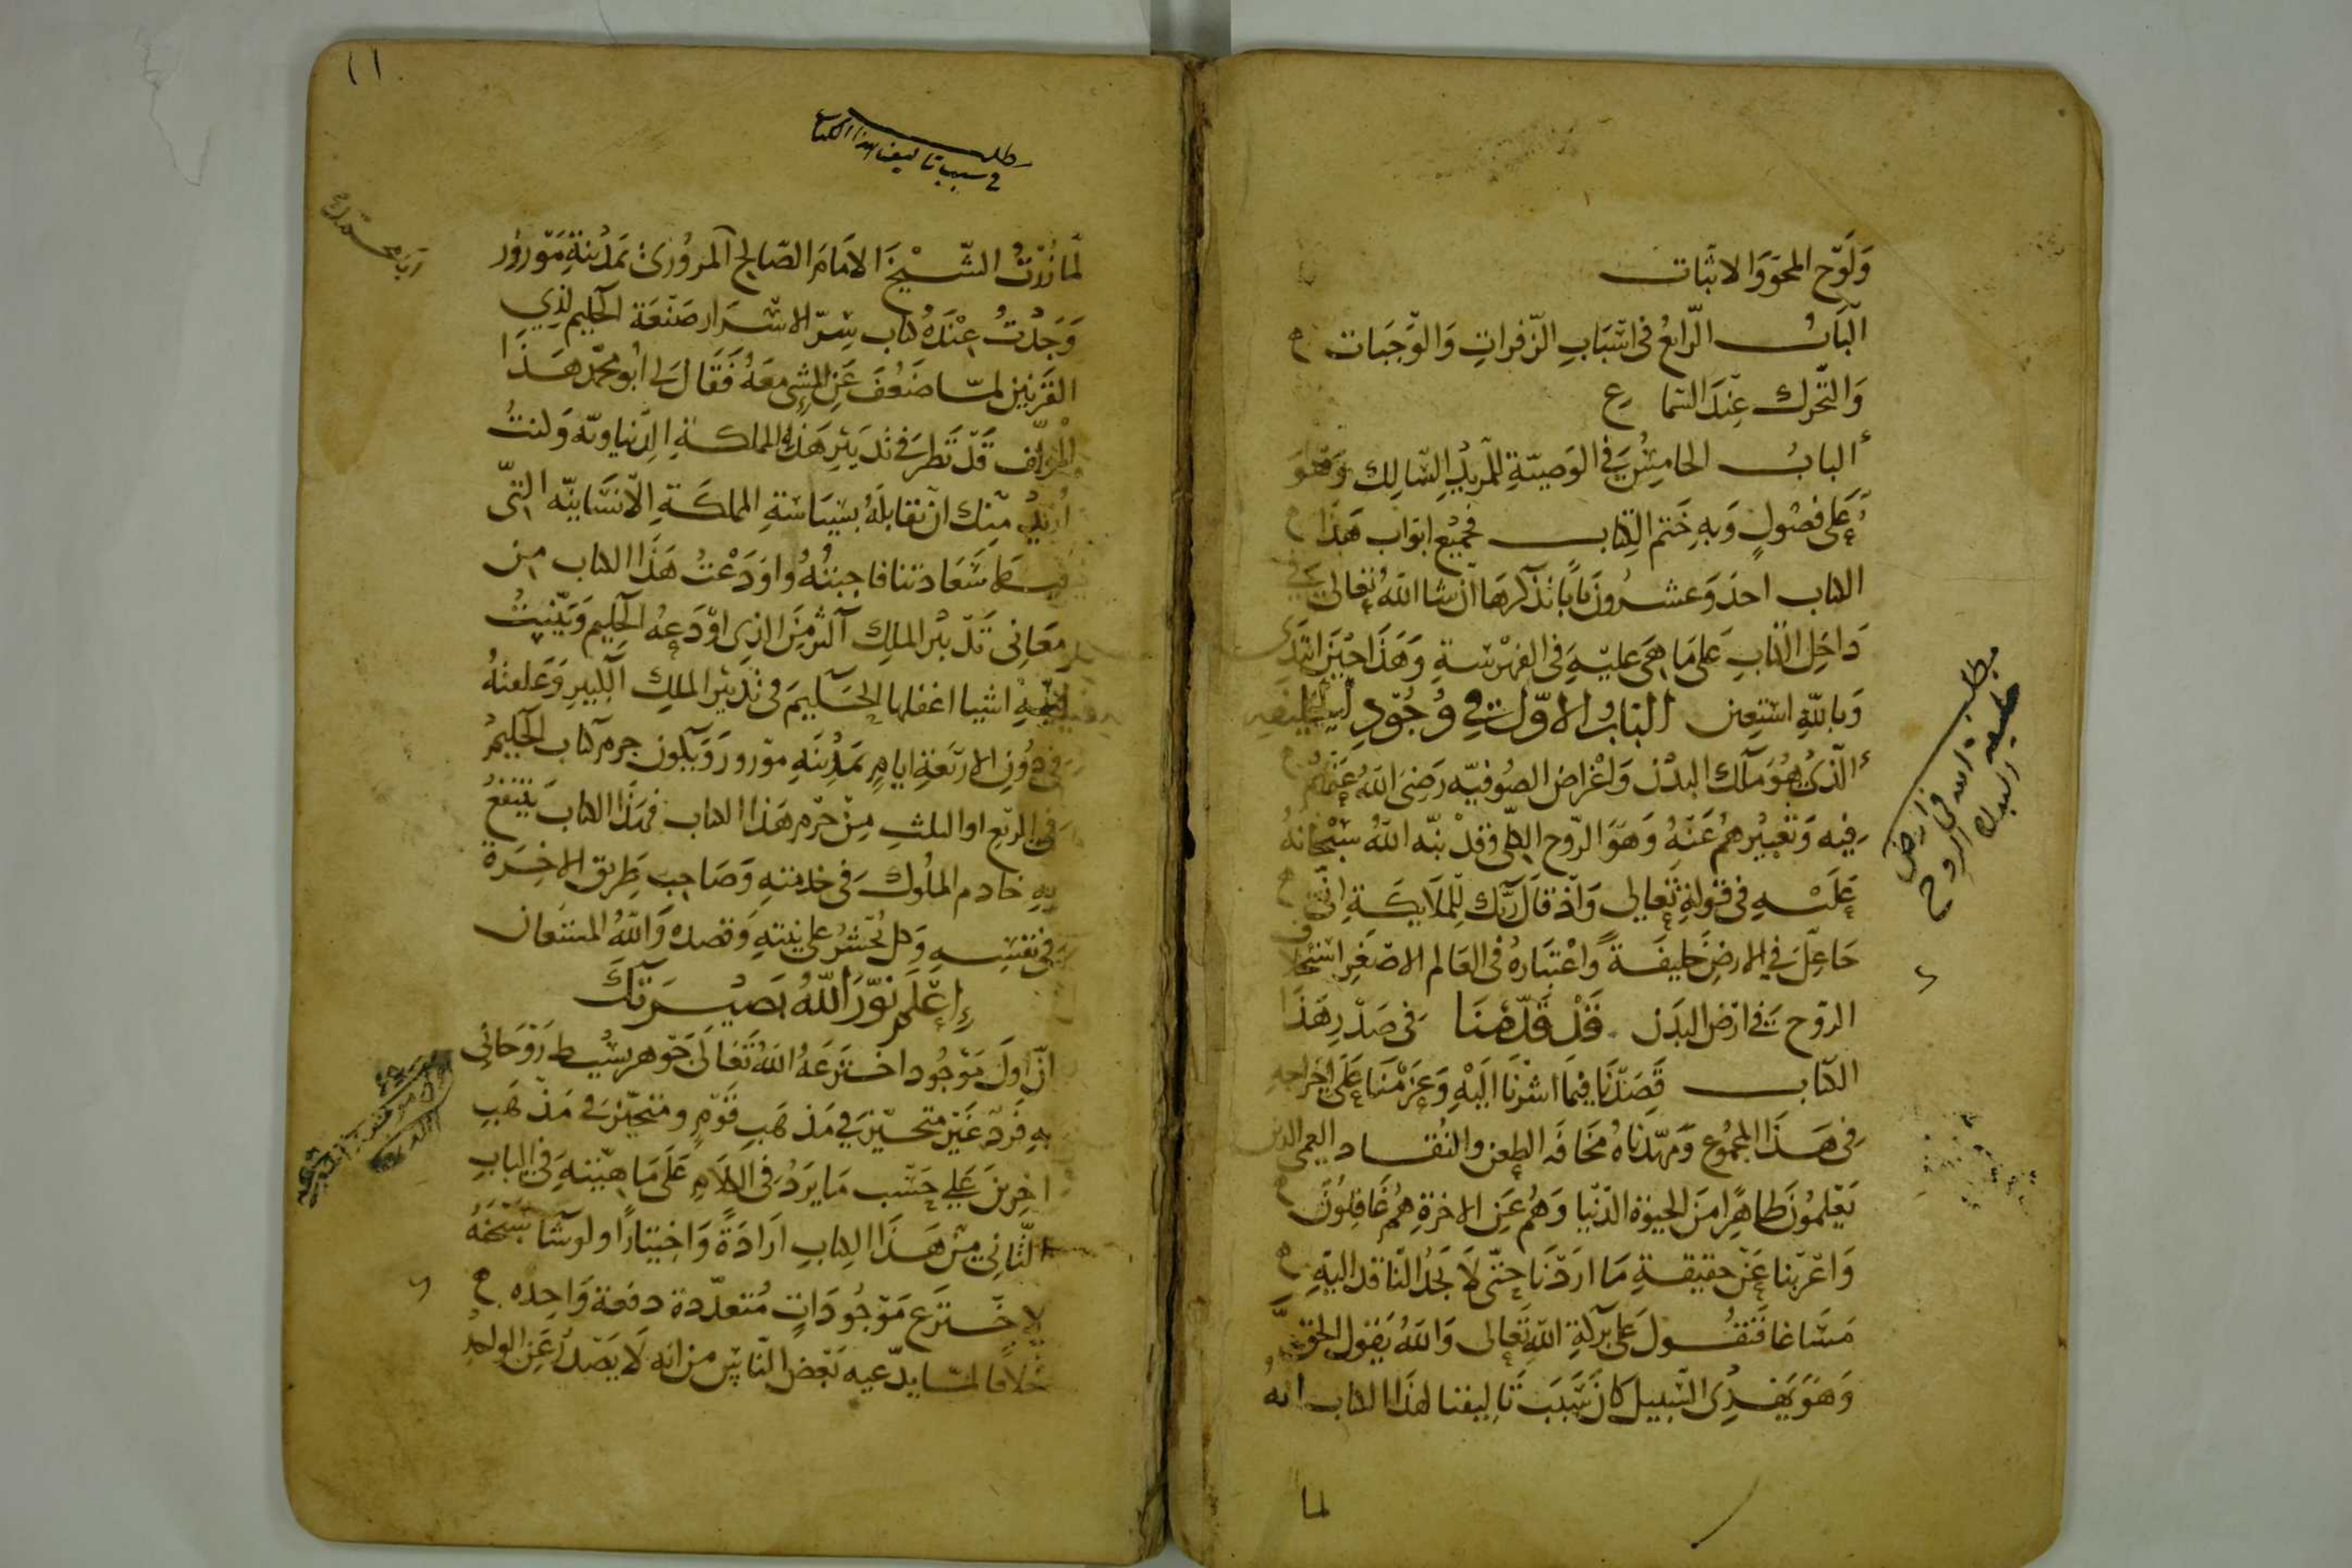 وَلَوْح المحو وَالاثبات
الْبَابُ الرَّابعُ فى اسْبَابِ الزّفراتِ وَالوَّجَبات
وَالتَّحرك عِندَ السّماع
البابُ الخامِسُ فى الوَصيّةِ للمريدِ السّالِك وَهُوَ
عَلى فصُولٍ وَبهِ خَتم الكِتاب فجميع ابوَاب هَذا
الكتاب احدَ وَعشرُونَ بَابًا نذكرهَا ان شا اللهُ تعَالى فى
دَاخِلِ الكتابِ عَلى مَا هى عليْهِ فى الفهْرسةِ وَهَذَا حينَ ابتدى
وَباللهِ استعين البَابُ الاوّل فى وُجُودِ الخليفه
الّذى هُوَ مَلك البَدْن وَاغراض الصُوفيّه رَضىَ اللهُ عَنْهُمْ
فِيه وَتعْبيْرهمْ عَنْهُ وَهوَ الرّوح الكلى وَقدْ نبّه اللهُ سبْحَانهُ
عَليْهِ فى قوْلهِ تَعالى وَاذ قالَ ربّك لِلملَايكَةِ انّى
جَاعِلٌ فى الارضِ خَليفَةً وَاعْتبَارهُ فى العَالم الاصغرِ استخلاف
الرّوح فى ارْض البَدَن قَدْ قَدَّمْنَا فى صَدْرِ هَذَا
الكتاب قَصَدْنَا فيمَا اشرْنَا اليْهِ وَعَزَمْنَا عَلى اخراجهِ
فى هَذَا المجْمُوع وَمهّدْناهُ مخَافَه الطعن والنُقاد العمى الذين
يَعْلمُونَ ظاهِرًا مِنَ الحيوٰة الدّنيَا وَهُم عَن الاخرةِ هُمْ غَافِلُونَ
وَاعْرَبْنا عَنْ حقيقةِ مَا ارَدْنا حتّى لَا يجدُ النّاقد اليْهِ
مَسَاغا فَنقُول عَلى بَركةِ اللهِ تَعَالى وَاللهُ يَقول الحق
وَهوَ يَهْدى السّبيل كَانَ سَبَبَ تَاليفنا لهذَا الكتاب انهُ
لما
مطلب
فى ارض
البدن
١١
مطلب
فى سبب تاليفنا هذا الكتاب
لَمَّا زُرْتُ الشّيْخَ الامَامَ الصّالح المرورىْ بَمَدْينةِ مَوْرور
وَجَدْتُ عِنْدَهُ كتاب سِرّ الاسْرَار صَنْعَة الحكيم لذِى
القَرنين لمّا ضَعُفَ عَنِ المشى معَهُ فَقَالَ لى ابُو محمّد هذَا
المؤلّف قَدْ نَظرَ فى تدْبيْرِ هَذِهِ المملكةِ الدّنياويّه وَكنتُ
اُريْدُ منك ان تقابلَهُ بسيَاسَةِ المملكَةِ الانسَانيّه التى
فيها سَعَادتنا فاجبتُهُ وَاودَعْتُ هَذَا الكتاب من
معَانى تدْبيْر الملك اكثر مِنَ الذى اوْدَعهُ الحكِيم وَبيّنتُ
فيْهِ اشيا اغفلها الحكيمَ فى تدبيْر الملِك الكبيرِ وَعَلقتهُ
فى دُوْنِ الارْبَعَةِ ايامٍ بمَدْينَةِ موْرورَ وَيكُون جرم كتاب الحكيم
فى الربْعِ او الثلث مِنْ جرْم هَذا الكتاب فهَذا الكتَابَ ينتفعُ
بهِ خادم الملُوك فى خدمتهِ وَصَاحِب طَريق الاخِرَة
فى نفْسِهِ وَكل يُحْشرُ على نيّتهِ وَقصدهِ وَاللهُ المسْتعان
اِعْلَم نَوَّرَ اللهُ بَصيْرَتَكَ
انَّ اولَ مَوْجُود اخترَعَهُ اللهُ تعَالى جَوْهر بسِيْط رَوْحَانى
بهِ فَرْد غَيْر متحيّز فى مَذهَبِ قَوْمٍ ومتحيّز فى مَذْهَبِ
اخرِينَ عَلى حَسَب مَا يرَدُ فى الكلَامِ عَلَى مَا هِيّتهِ فى البابِ
الثّانِى مِنْ هَذَا الكِتابِ ارَادَةً وَاختِيَارًا ولو شَا سُبْحَانهُ
لاخْترَع مَوْجُودَاتٍ مُتعدّدة دفعة وَاحِده
خلَافًا لمَا يدّعيه بَعْض النّاس من انه لَا يَصْدُر عَنِ الوَاحد